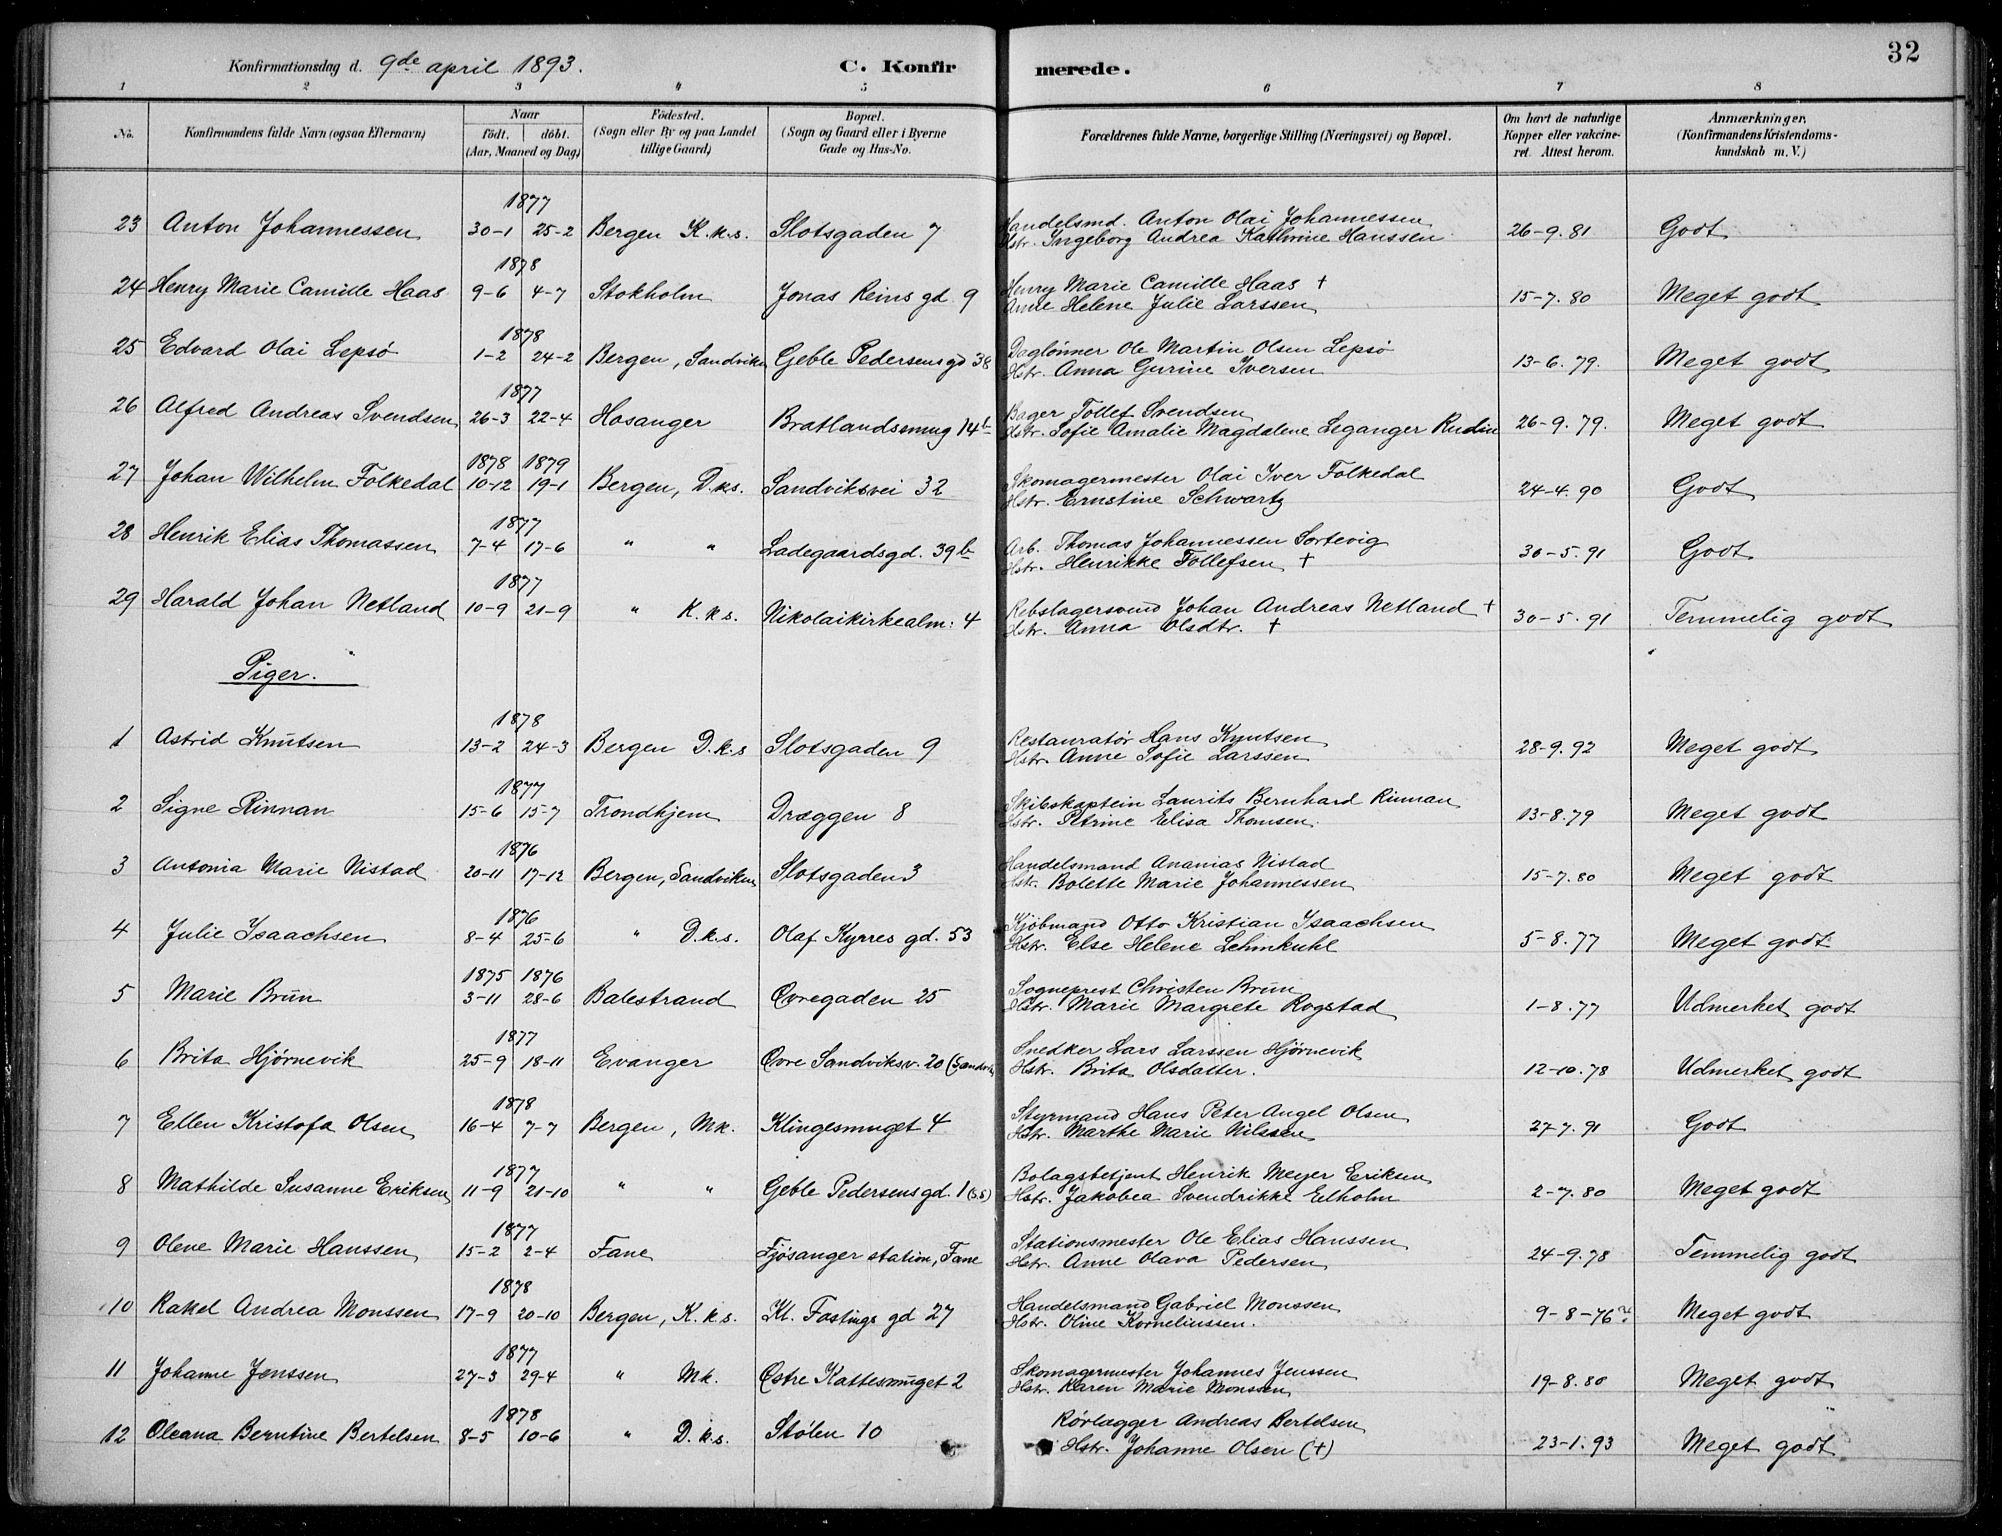 Konfirmationsdag d. 9de april 1893. C. Konfirmerede. 32
1 2 3 4 5 6 7 8
No. Konfirmandens fulde Navn (ogsaa Efternavn) Naar födt. döbt. (Aar, Maaned og Dag) Födested. (Sogn eller By og paa Landet tillige Gaard) Bopæl. (Sogn og Gaard eller i Byerne Gade og Hus-No. Forældrenes fulde Navne, borgerlige Stilling (Næringsvei) og Bopæl. Om havt de naturlige Kopper eller vakcineret. Attest herom. Anmærkninger. (Konfirmandens Kristendomskundskab m. V.)
1877
23 Anton Johannessen 30-1 25-2 Bergen K.k.s. Slotsgaden 7 Handelsmd. Anton Olai Johannessen 26-9.81 Godt
Hstr. Ingeborg Andrea Kathrine Hanssen
1878
24 Henry Marie Camille Haas 9-6 4-7 Stokholm Jonas Reins gd. 9 Henry Marie Camille Haas † 15-7.80 Meget godt
Anne Helene Julie Larssen
1878
25 Edvard Olai Lepsö 1-2 24-2 Bergen, Sandviken Geble Pedersens gd 38 Daglönner Ole Martin Olsen Lepsö 13-6.79. Meget godt
Hstr. Anna Gurine Iversen
1877
26 Alfred Andreas Svendsen 26-3 22-4 Hosanger Bratlandsmug 14b Bager Tollef Svendsen 26-9.79. Meget godt
Hstr. Sofie Amalie Magdalene Leganger Rudin
1878 1879
27 Johan Wilhelm Folkedal 10-12 19-1 Bergen, D.k.s. Sandviksvei 32 Skomagermester Olai Iver Folkedal 24-4.90 Godt
Hstr. Ernstine Schwartz
1877
28 Henrik Elias Thomassen 7-4 17-6 " " Ladegaardsgd. 39b Arb. Thomas Johannessen Sortevig 30-5.91 Godt
Hstr. Henrikke Tollefsen †
1877
29 Harald Johan Netland 10-9 21-9 " K.k.s. Nikolaikirkealm: 4 Rebslagersvend Johan Andreas Netland † 30-5.91 Temmelig godt
Hstr. Anna Olsdtr. †
Piger.
1878
1 Astrid Knutsen 13-2 24-3 Bergen D.k.s Slotsgaden 9 Restauratör Hans Knutsen 28-9.92 Meget godt
Hstr. Anne Sofie Larssen
1877
2 Signe Rinnan 15-6 15-7 Trondhjem Dræggen 8 Skibskaptein Laurits Bernhard Rinnan 13-8.79 Meget godt
Hstr. Petrine Elisa Thomsen.
1876
3 Antonia Marie Nistad 20-11 17-12 Bergen, Sandviken Slotsgaden 3 Handelsmand Ananias Nistad 15-7.80 Meget godt
Hstr. Bolette Marie Johannessen
1876
4 Julie Isaachsen 8-4 25-6 " D.k.s. Olaf Kyrres gd. 53 Kjöbmand Otto Kristian Isaachsen 5-8.77 Meget godt
Hstr. Else Helene Lehmkuhl
1875 1876
5 Marie Brun 3-11 28-6 Balestrand Øvregaden 25 Sogneprest Christen Brun 1-8.77 Udmerket godt
Hstr. Marie Margrete Rogstad
1877
6 Brita Hjörnevik 25-9 18-11 Evanger Øvre Sandviksv. 20 (Sandvik Snedker Lars Larssen Hjörnevik 12-10.78 Udmerket godt
Hstr. Brita Olsdatter.
1878
7 Ellen Kristofa Olsen 16-4 7-7 Bergen, Mk. Klingesmuget 4 Styrmand Hans Peter Angel Olsen 27-7.91 Godt
Hstr. Marthe Marie Nilssen
1877
8 Mathilde Susanne Eriksen 11-9 21-10 " " Geble Pedersens gd. 1 (S.S) Bolagsbetjent Henrik Meyer Eriksen 2-7.80 Meget godt
Hstr. Jakobea Svendrikke Eelholm
1877
9 Olene Marie Hanssen 15-2 2-4 Fane Fjösanger station, Fane Stationsmester Ole Elias Hanssen 24-9.78 Temmelig godt
Hstr. Anne Olava Pedersen
1878
10 Rakel Andrea Monssen 17-9 20-10 Bergen, K.k.s. Kl. Fastings gd 27 Handelsmand Gabriel Monssen 9-8-76? Meget godt
Hstr. Oline Korneliussen.
1877
11 Johanne Jenssen 27-3 29-4 " Mk. Østre Kattesmuget 2 Skomagermester Johannes Jenssen 19-8.80 Meget godt
Hstr. Karen Marie Monssen
1878
12 Oleana Berntine Bertelsen 8-5 10-6 " D.k.s. Stölen 10 Rörlægger Andreas Bertelsen 23-1.93 Meget godt
Hstr. Johanne Olsen (†)